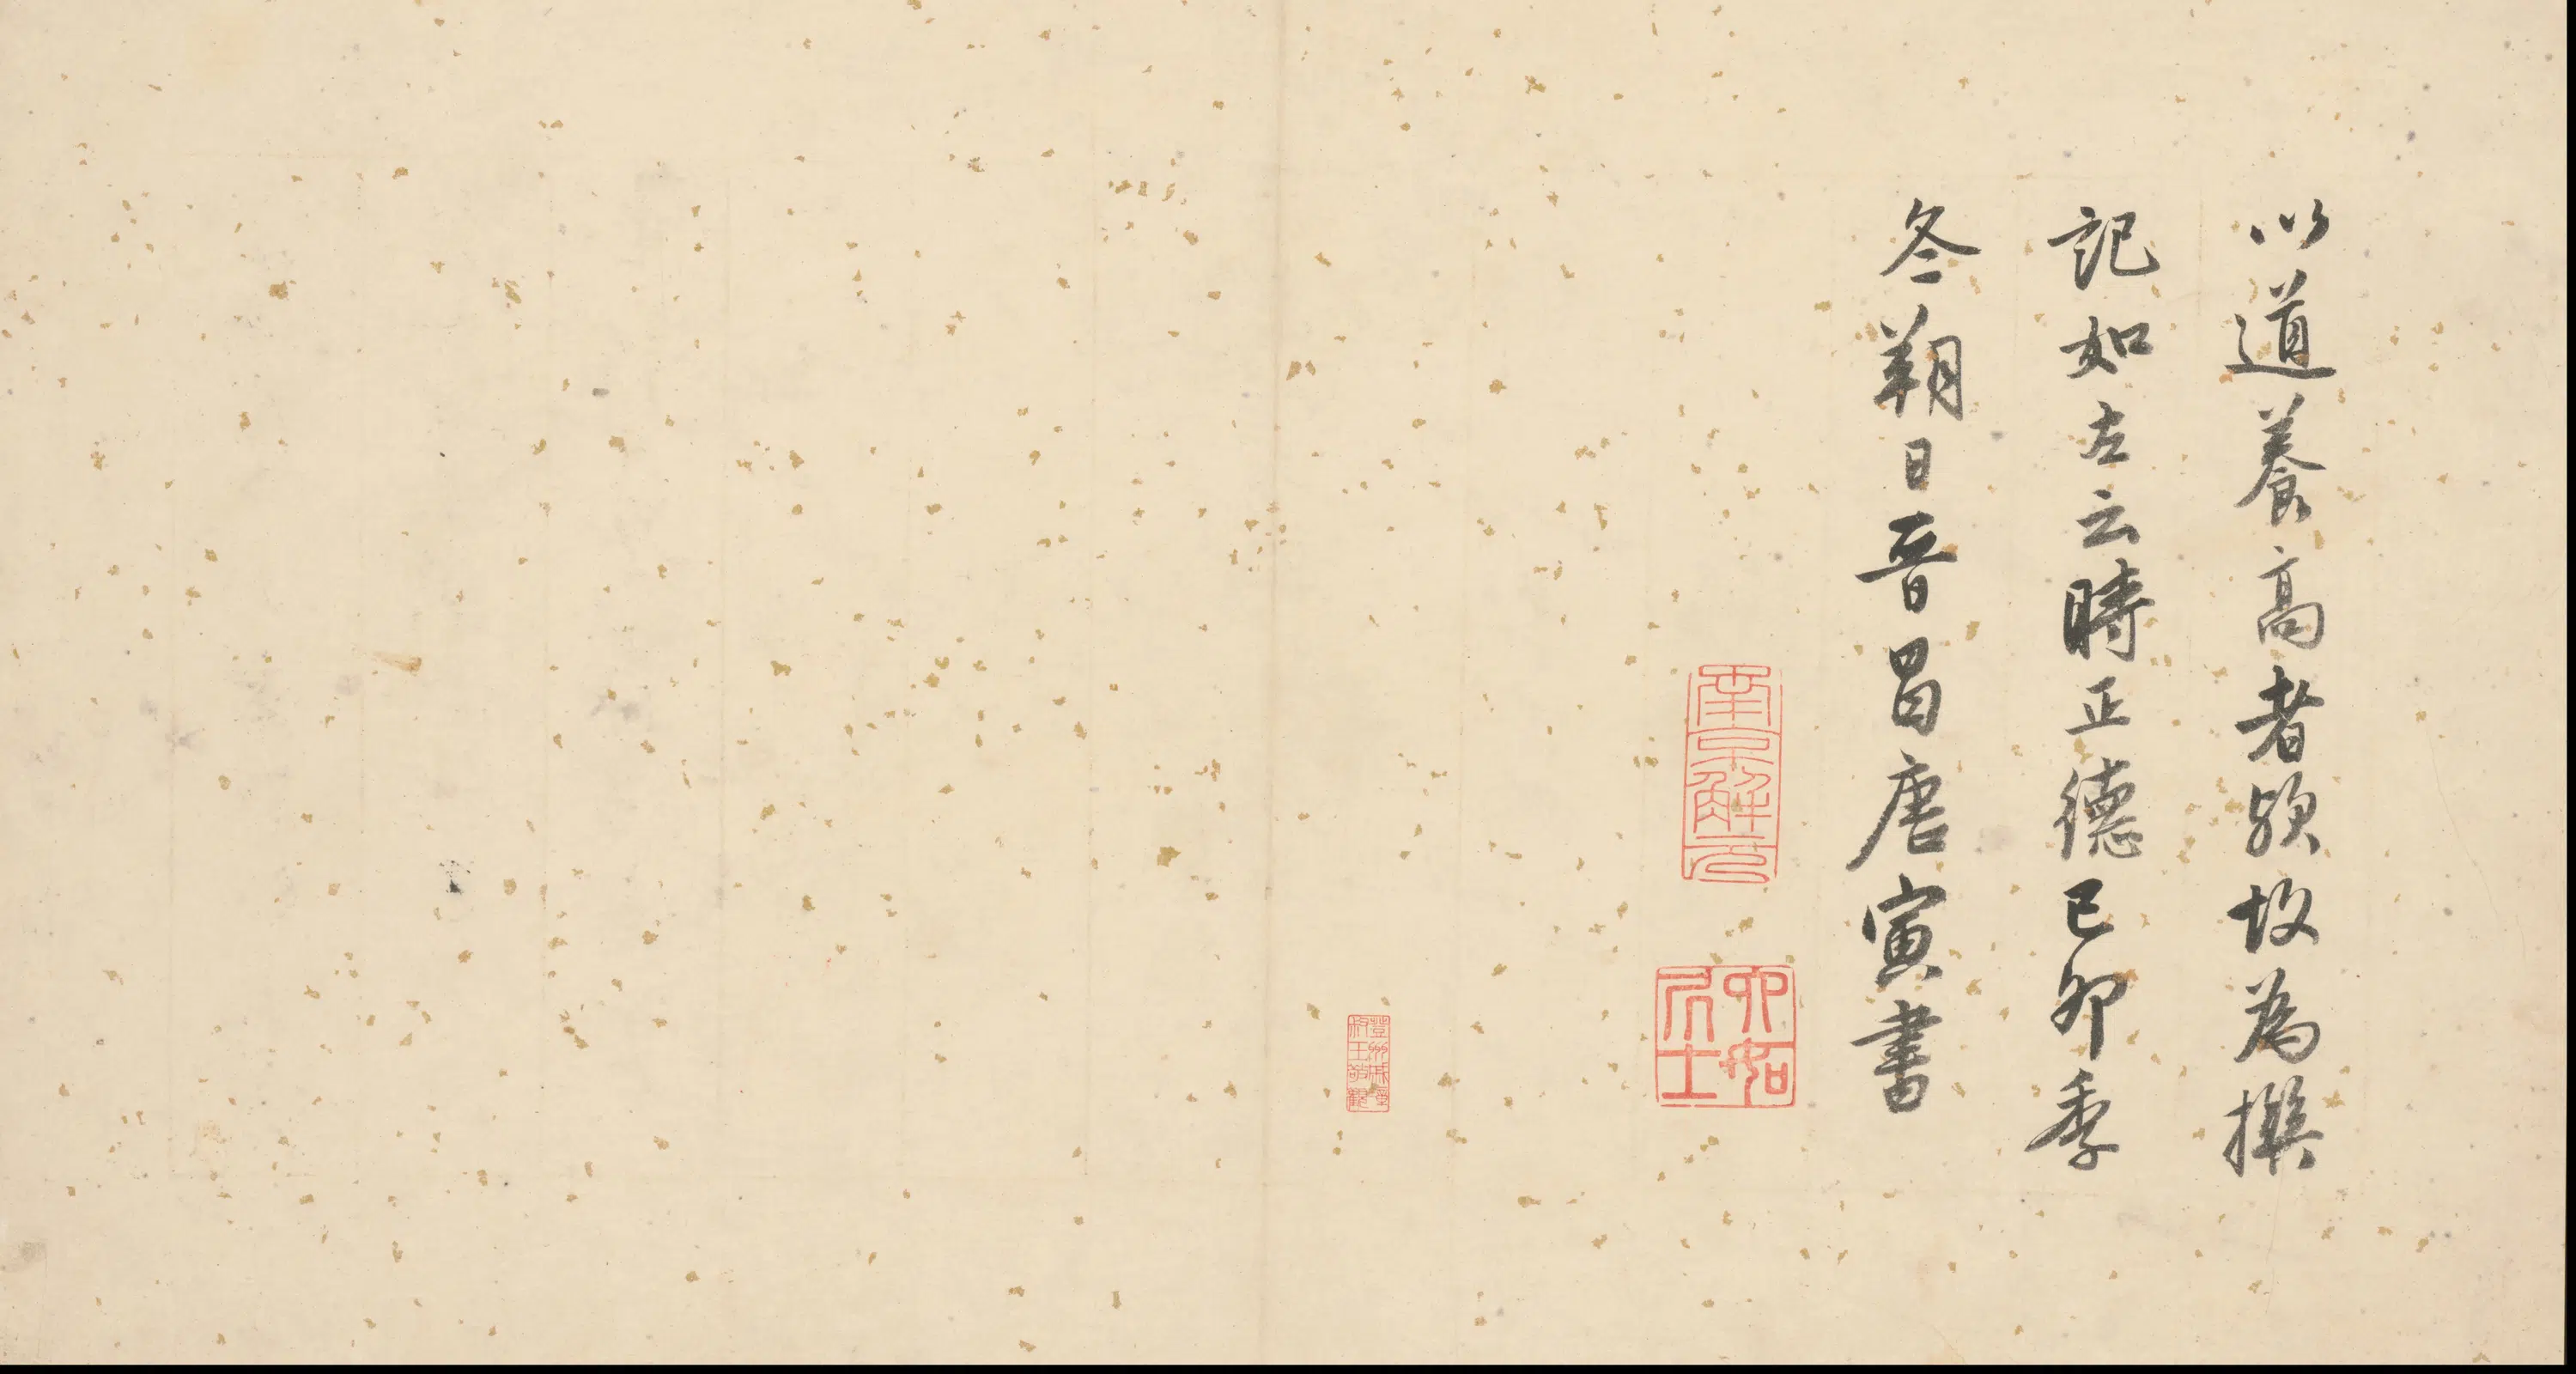 以道養高者歟故為撰
記如左云時正德己卯季
冬朔日晉昌唐寅書
南京解元
六如居士